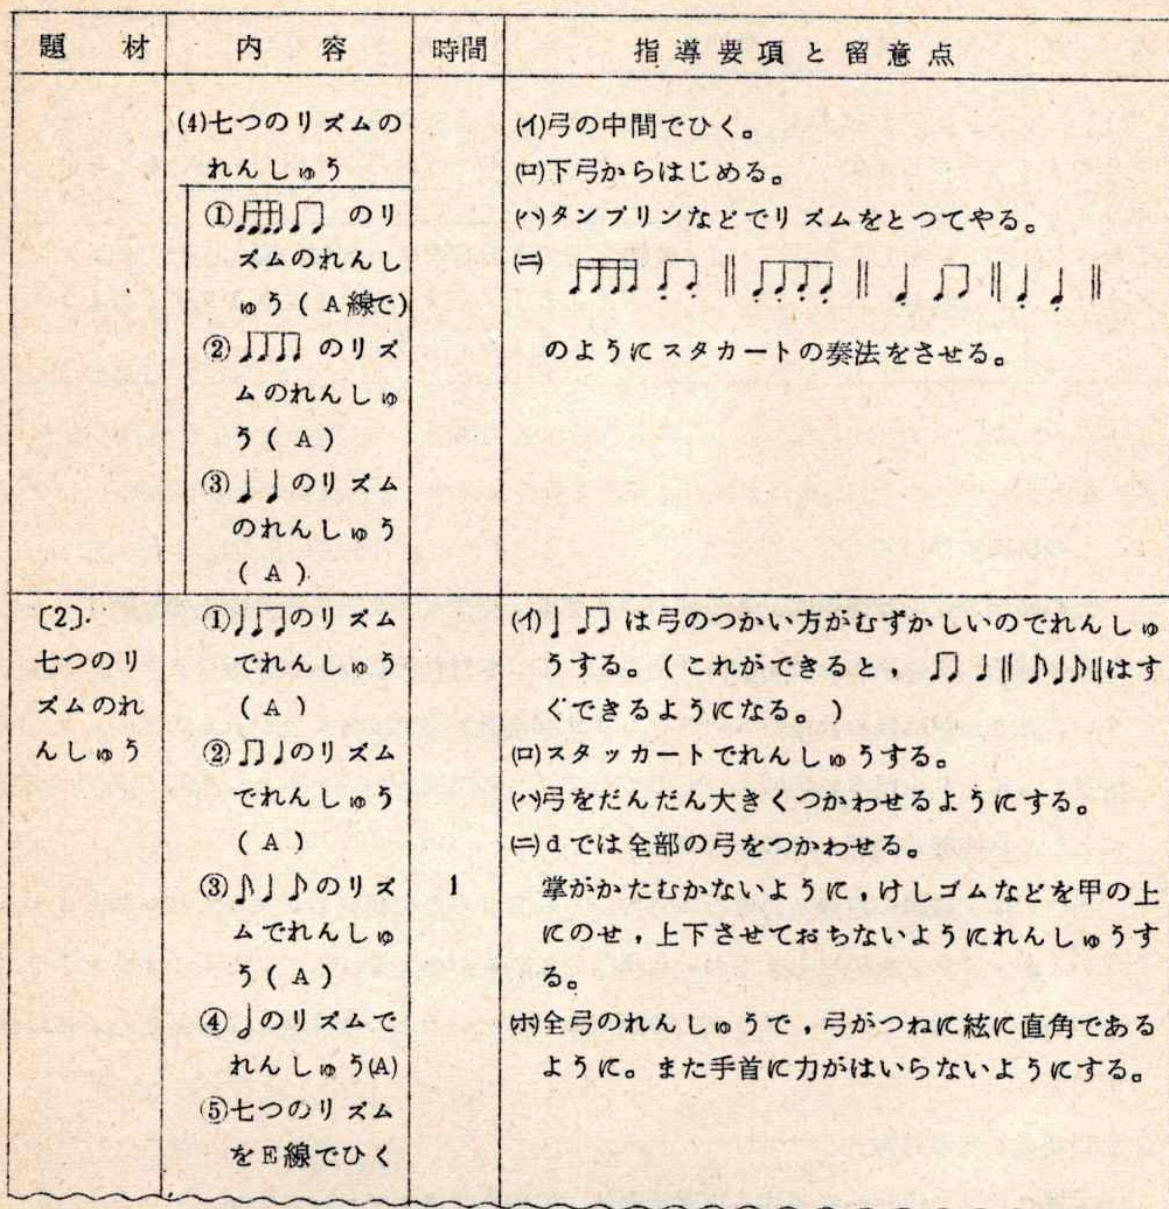 題材 内容 時間 指導要項と留意点
(4)七つのリズムの
れんしゅう
①♬♬♫ のリ
ズムのれんし
ゅう(A線で)
②♫♫ のリズ
ムのれんしゅ
う(A)
③♩♩のリズム
のれんしゅう
(A)
(イ)弓の中間でひく。
(ロ)下弓からはじめる。
(ハ)タンブリンなどでリズムをとつてやる。
(ニ) ♬♬ ♫ ‖ ♫♫ ‖ ♩ ♫ ‖ ♩ ♩ ‖
のようにスタカートの奏法をさせる。
〔2〕.
七つのリ
ズムのれ
んしゅう
①♩♫のリズム
でれんしゅう
(A)
②♫♩のリズム
でれんしゅう
(A)
③♪♩♪のリズ
ムでれんしゅ
う(A)
④𝅗𝅥のリズムで
れんしゅう(A)
⑤七つのリズム
をE線でひく
1
(イ)♩♫ は弓のつかい方がむずかしいのでれんしゅ
うする。(これができると, ♫♩‖♪♩♪‖はす
ぐできるようになる。)
(ロ)スタッカートでれんしゅうする。
(ハ)弓をだんだん大きくつかわせるようにする。
(ニ)dでは全部の弓をつかわせる。
掌がかたむかないように,けしゴムなどを甲の上
にのせ,上下させておちないようにれんしゅうす
る。
(ホ)全弓のれんしゅうで,弓がつねに絃に直角である
ように。また手首に力がはいらないようにする。